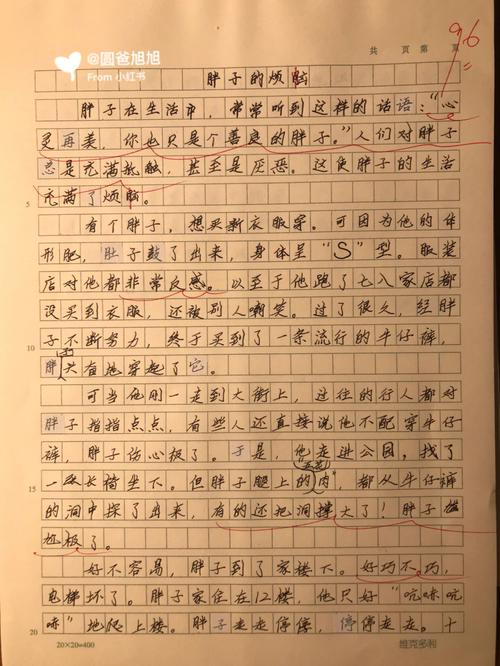 @圆爸旭旭
From 小红书
共 页 第 页
96
胖子的烦脑
胖子在生活中，常常听到这样的话语：“心
灵再美，你也只是个善良的胖子。”人们对胖子
总是充满抵触，甚至是厌恶。这使胖子的生活
充满了烦脑。
5
有个胖子，想买新衣服穿。可因为他的体
形肥，肚子鼓了出来，身体呈“S”型。服装
店对他都非常反感。以至于他跑了七八家店都
没买到衣服，还被别人嘲笑。过了很久，经胖
子不断努力，终于买到了一条流行的牛仔裤，
10
胖只有地穿起了它。
可当他刚一走到大街上，过往的行人都对
胖子指指点点，有些人还直接说他不配穿牛仔
裤，胖子伤心极了。于是，他走进公园，找了
一张长椅坐下。但胖子腿上的肉，都从牛仔裤
15
的洞中探了出来，有的还把洞撑大了！胖子尴
尬极了。
好不容易，胖子到了家楼下。好巧不巧，
电梯坏了。胖子家住在12楼，他只好“吭哧吭
哧”地爬上楼。胖子走走停停，停停走走。十
20
20×20=400
维克多利